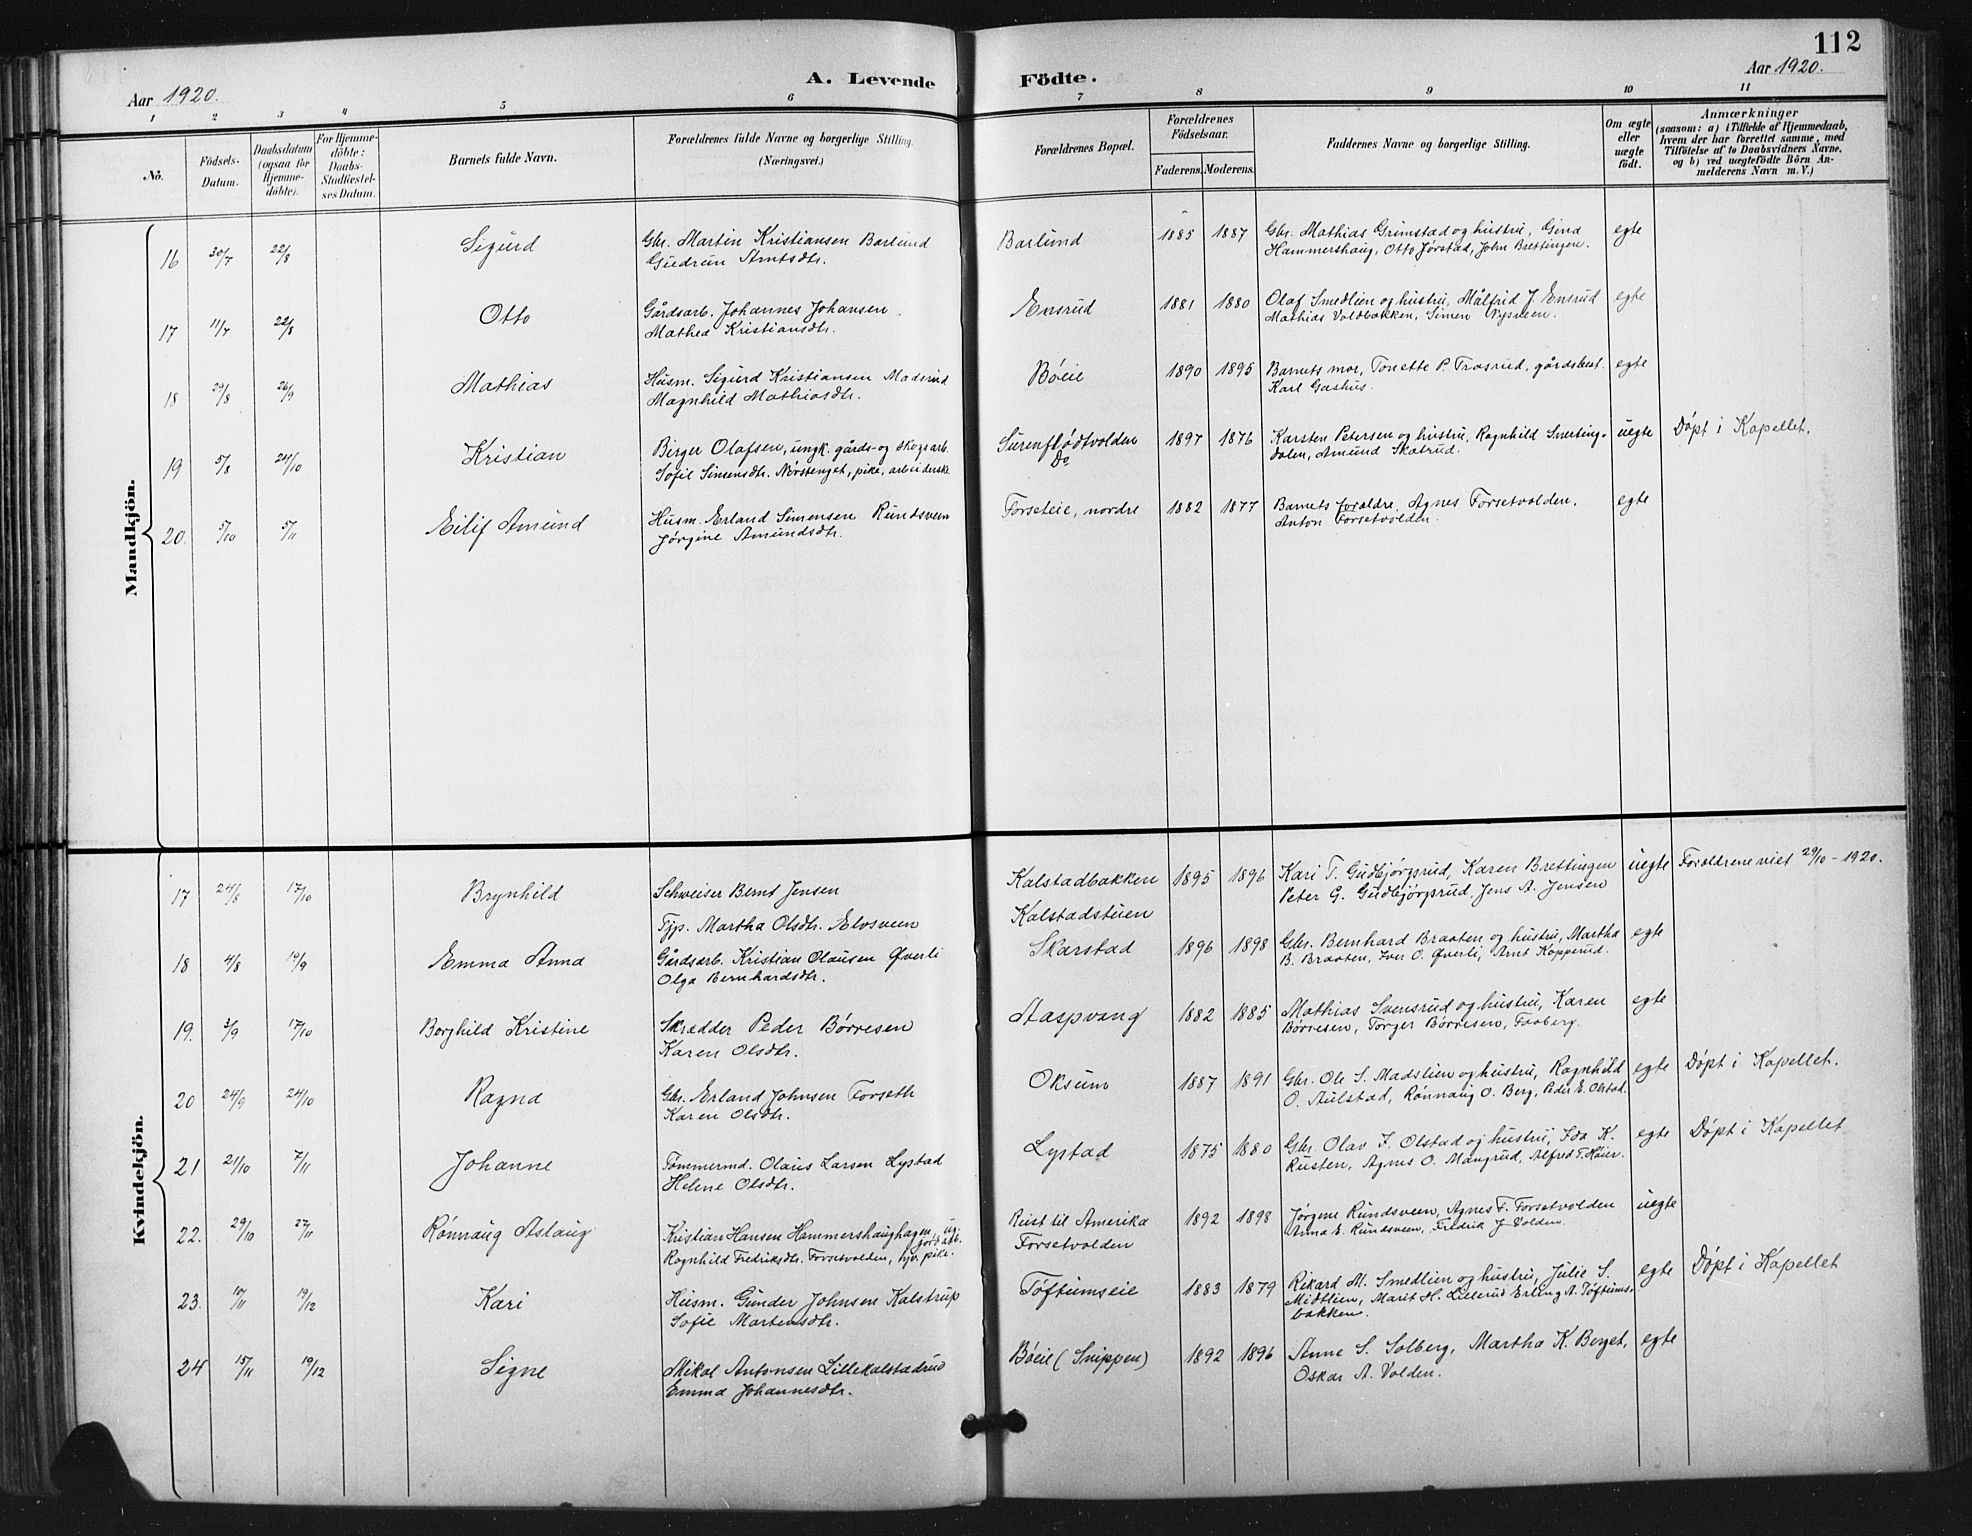 112
Aar 1920.
A. Levende Födte.
Aar 1920.
1 2 3 4 5 6 7 8 9 10 11
No.
Födsels-Datum.
Daabsdatum (ogsaa for Hjemmedöbte).
For Hjemmedöbte: Daabs-Stadfæstelses Datum.
Barnets fulde Navn.
Forældrenes fulde Navne og borgerlige Stilling. (Næringsvei.)
Forældrenes Bopæl.
Forældrenes Födselsaar.
Faderens. Moderens.
Faddernes Navne og borgerlige Stilling.
Om ægte eller uægte födt.
Anmærkninger
(saasom: a) i Tilfælde af Hjemmedaab, hvem der har forrettet samme, med Tilföielse af to Daabsvidners Navne, og b) ved uægtefödte Börn Anmelderens Navn m. V.)
Mandkjön.
16 30/7 22/8 Sigurd Gbr. Martin Kristiansen Barlund Barlund 1885 1887 Gbr. Mathias Grimstad og hustru, Gina egte
Gudrun Arntsdtr. Hammershaug, Otto Jørstad, John Brettingen.
17 11/7 22/8 Otto Gårdsarb. Johannes Johansen Ensrud 1881 1880 Olaf Smedlien og hustru, Målfrid J. Ensrud egte
Mathea Kristiansdtr. Mathias Voldbakken, Simen Nysveen.
18 29/8 26/9 Mathias Husm. Sigurd Kristiansen Madsrud Bøeie 1890 1895 Barnets mor, Tonette P. Trosrud, gårdsbest. egte
Magnhild Mathiasdtr. Karl Gashus.
19 5/8 24/10 Kristian Birger Olafsen, ungk. gårds- og skogsarb. Surenflødtvolden 1897 1876 Karsten Petersen og hustru, Ragnhild Smerting- uegte Døpt i Kapellet.
Sofie Simensdtr. Nørstenget, pike, arbeiderske Do dalen, Amund Skatrud.
20. 5/10 5/11 Eilif Amund Husm. Erland Simensen Rundsveen Forseteie, nordre 1882 1877 Barnets foraldre, Agnes Forsetvolden, egte
Jørgine Amundsdtr. Anton Forsetvolden.
Kvindekjön.
17 24/8 17/10 Brynhild Schweiser Bernt Jensen Kalstadbakken 1895 1896 Kari T. Gudbjørgsrud, Karen Brettingen uegte Foraldrene viet 29/10 - 1920.
Tjp. Martha Olsdtr. Elvsveen Kalstadstuen Peter G. Gudbjørgsrud, Jens A. Jensen
18 4/8 19/9 Emma Anna Gårdsarb. Kristian Olausen Øverli Skarstad 1896 1898 Gbr. Bernhard Braaten og hustru, Martha egte
Olga Bernhardsdtr. B. Braaten, Iver O. Øverli, Arnt Kopperud.
19. 3/9 17/10 Borghild Kristine Skrædder Peder Børresen Aaspvang 1882 1885 Mathias Svensrud og hustru, Karen egte
Karen Olsdtr. Børresen, Torger Børresen, Faaberg.
20 24/9 24/10 Ragna Gbr. Erland Johnsen Forseth Oksum 1887 1891 Gbr. Ole S. Madslien og hustru, Ragnhild egte Døpt i Kapellet.
Karen Olsdtr. O. Aulstad, Rønnaug O. Berg, Peder E. Olstad.
21 21/10 7/11 Johanne Tømmermd. Olaus Larsen Lystad Lystad 1875 1880 Gbr. Olav J. Olstad og hustru, Ida K. egte Døpt i Kapellet
Helene Olsdtr. Rusten, Agnes O. Mangrud, Alfred T. Høier.
22. 29/10 27/11 Rønnaug Aslaug Kristian Hansen Hammershaughagen ug. gårdsarb. Reist til Amerika 1892 1898 Jørgine Rundsveen, Agnes F. Forsetvolden uegte
Ragnhild Fredriksdtr. Forsetvolden, hjv. pike. Forsetvolden Anna E. Rundsveen, Fredrik J. Volden.
23. 10/11 19/12 Kari Husm. Gunder Johnsen Kalstrup Tøftumseie 1883 1879 Rikard M. Smedlien og hustru, Julie S. egte Døpt i Kapellet
Sofie Martensdtr. Midtlien, Marit H. Lillerud, Erling A. Tøftums-
bakken.
24 15/11 19/12 Signe Mikal Antonsen Lillekalstadrud Bøeie (Snippen) 1892 1896 Anne S. Solberg, Martha K. Berget, egte
Emma Johannesdtr. Oskar A. Volden.